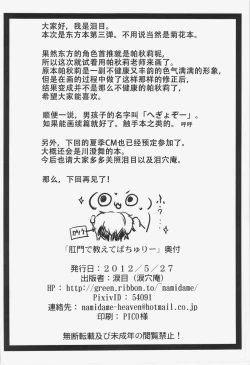 大家好，我是泪目。
本次是东方本第三弹，不用说当然是菊花本。
果然东方的角色首推就是帕秋莉呢，
所以这次就试着用帕秋莉老师来画了。
原本帕秋莉是一副不健康又丰韵的色气满满的形象，
但是在画的过程中做了这样那样的修正后，
结果变成并不是那么不健康的帕秋莉了，
希望大家能喜欢。
顺便一说，男孩子的名字叫「へぎょぞー」。
如果能画续篇就好了，触手本之类的。呼呼
另外，下回的夏季CM也已经预定参加了，
大概还会是川澄舞的本。
今后也请大家多多关照泪目以及泪穴庵。
那么，下回再见了！
ふぅ…
「肛門で教えてぱちゅりー」奥付
発行日：2012/5/27
出版者：涙目（涙穴庵）
HP：http://green.ribbon.to/~namidame/
PixivID：54091
連絡先：namidame-heaven@hotmail.co.jp
印刷：PICO様
無断転載及び未成年の閲覧禁止！